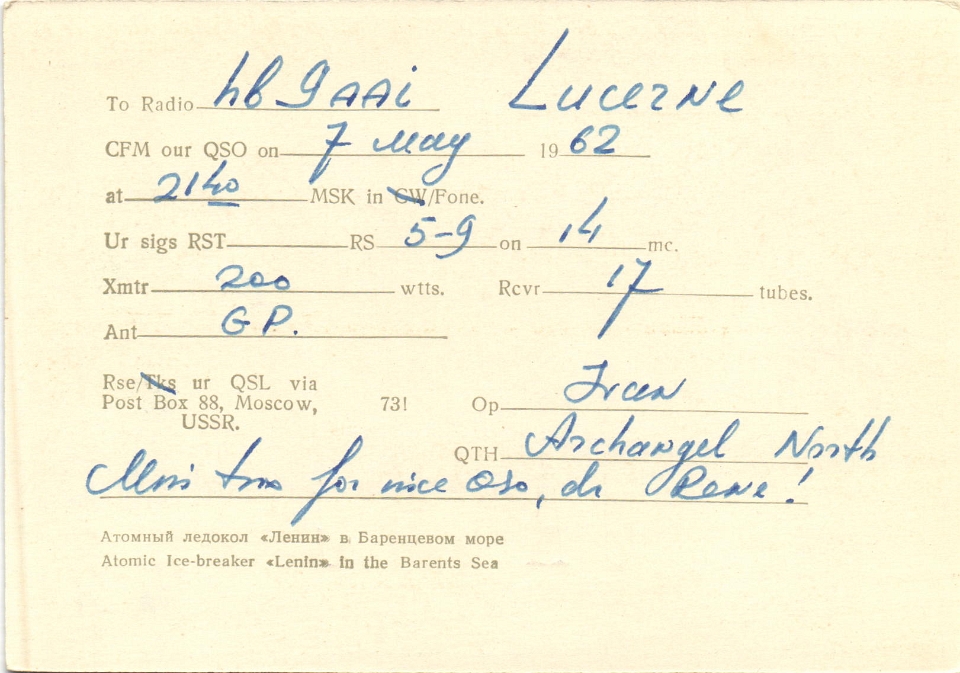 To Radio hb9AAi Lucerne
CFM our QSO on 7 May 1962
at 2140 MSK in CW/Fone.
Ur sigs RST RS 5-9 on 14 mc.
Xmtr 200 wtts. Rcvr 17 tubes.
Ant G P.
Rse/Tks ur QSL via
Post Box 88, Moscow, 73! Op Ivan
USSR.
QTH Archangel North
for nice QSO, dr Rene!
Атомный ледокол «Ленин» в Баренцевом море
Atomic Ice-breaker «Lenin» in the Barents Sea